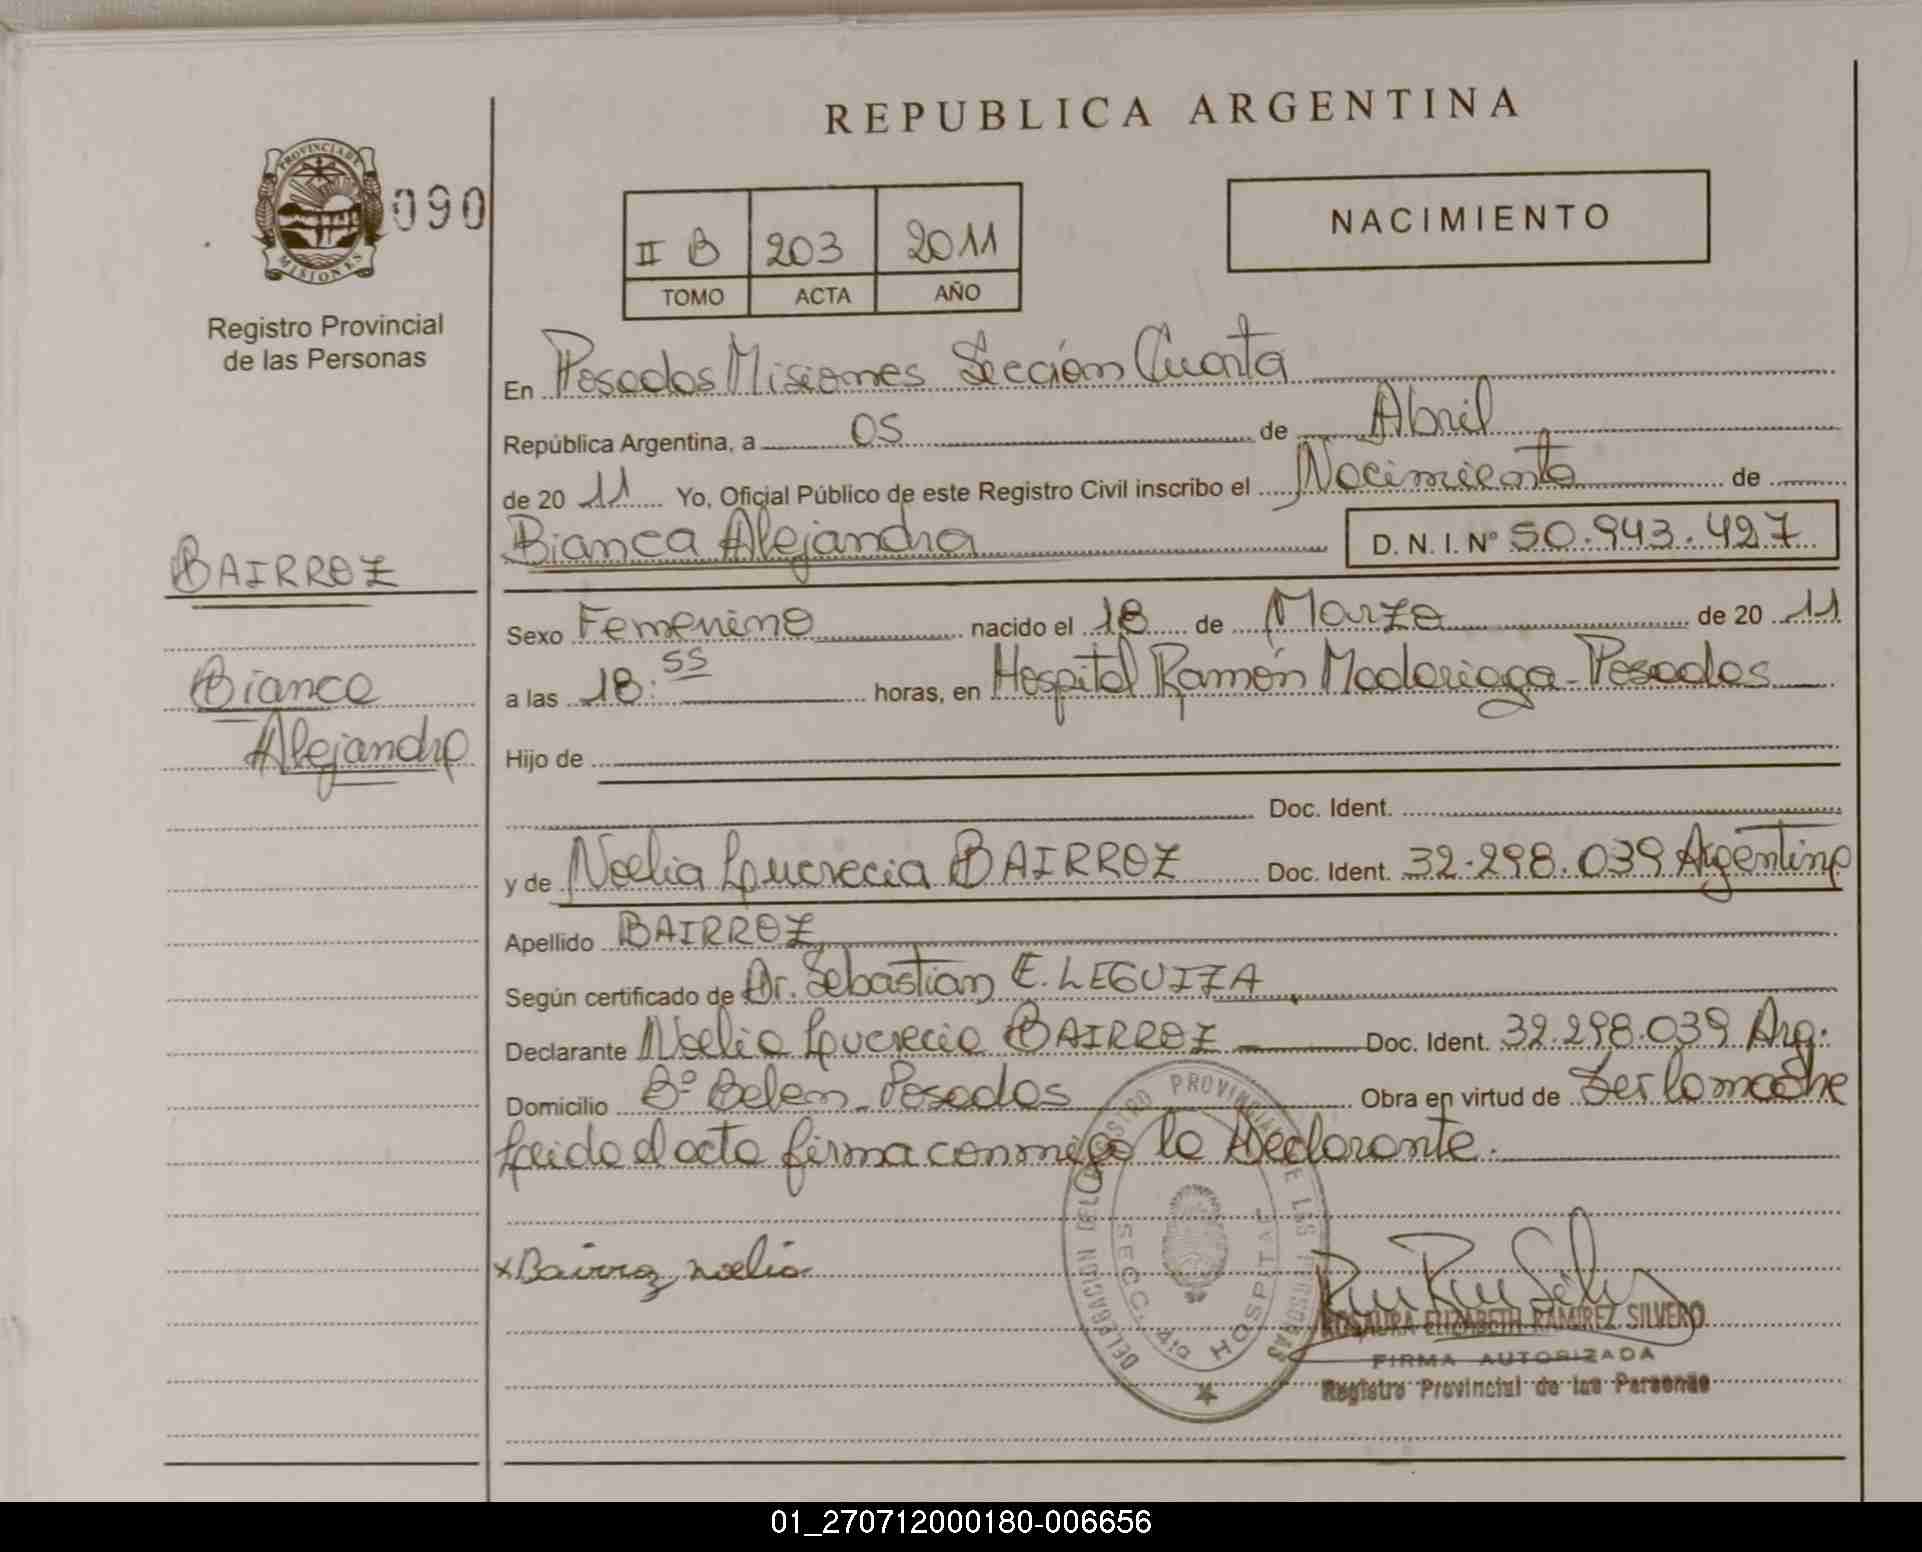 REPUBLICA ARGENTINA
PROVINCIA DE MISIONES
090
Registro Provincial
de las Personas
II B 203 2011
TOMO ACTA AÑO
NACIMIENTO
En Posadas Misiones Sección Cuarta
República Argentina, a 05 de Abril
de 20 11 Yo, Oficial Público de este Registro Civil inscribo el Nacimiento de
Bianca Alejandra D. N. I. Nº 50.943.427
BAIRROZ
Bianca
Alejandra
Sexo Femenino nacido el 18 de Marzo de 20 11
a las 18:55 horas, en Hospital Ramón Madariaga - Posadas
Hijo de
Doc. Ident.
y de Noelia Lucrecia BAIRROZ Doc. Ident. 32.298.039 Argentina
Apellido BAIRROZ
Según certificado de Dr. Sebastian E. LEGUIZA
Declarante Noelia Lucrecia BAIRROZ Doc. Ident. 32.298.039 Arg.
Domicilio Bº Belen - Posadas Obra en virtud de Ser la madre
Leida el acta firma conmigo la Declarante.
x Bairroz noelia
DELEGACION DEL REGISTRO PROVINCIAL DE LAS PERSONAS
SECC. 4ta HOSPITAL
ROSAURA ELIZABETH RAMIREZ SILVERO
FIRMA AUTORIZADA
Registro Provincial de las Personas
01_270712000180-006656